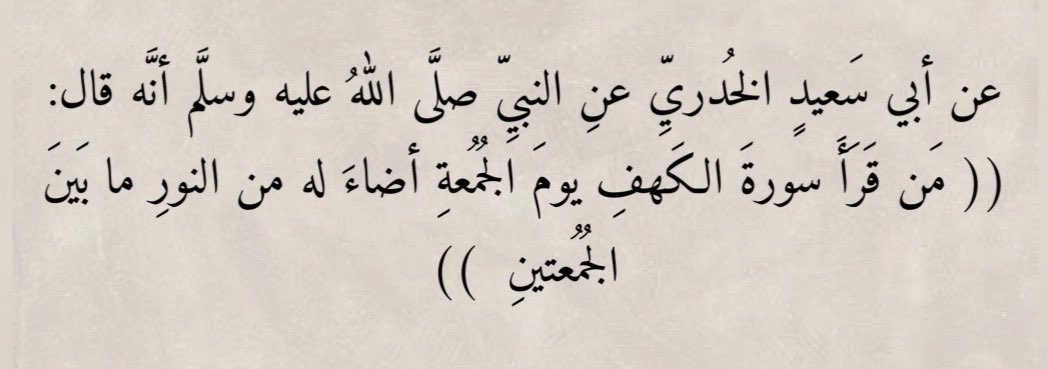 عن أبي سَعيدٍ الخُدريِّ عنِ النبيِّ صلَّى اللهُ عليه وسلَّم أنَّه قال:
(( مَن قَرَأَ سورةَ الكَهفِ يومَ الجُمُعةِ أضاءَ له من النورِ ما بَينَ
الجُمُعتينِ ))